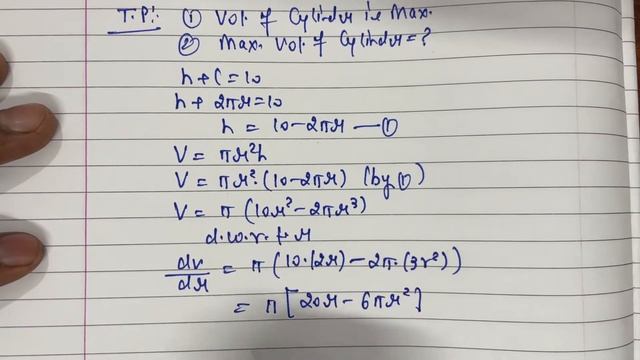 T.P:- ① Vol. of Cylinder is Max.
② Max. Vol. of Cylinder = ?
h + C = 10
h + 2πr = 10
h = 10 - 2πr —①
V = πr²h
V = πr²·(10 - 2πr) (by ①)
V = π(10r² - 2πr³)
d.w.r.t r
dv/dr = π(10·(2r) - 2π·(3r²))
= π[20r - 6πr²]